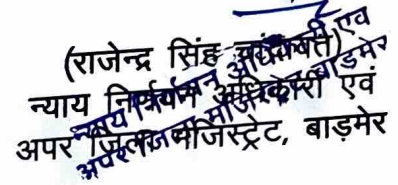 (राजेन्द्र सिंह चांदावत)
न्याय निर्णयन अधिकारी एवं
अपर जिला मजिस्ट्रेट, बाड़मेर
न्याय निर्णयन अधिकारी एवं
अपर जिला मजिस्ट्रेट बाड़मेर